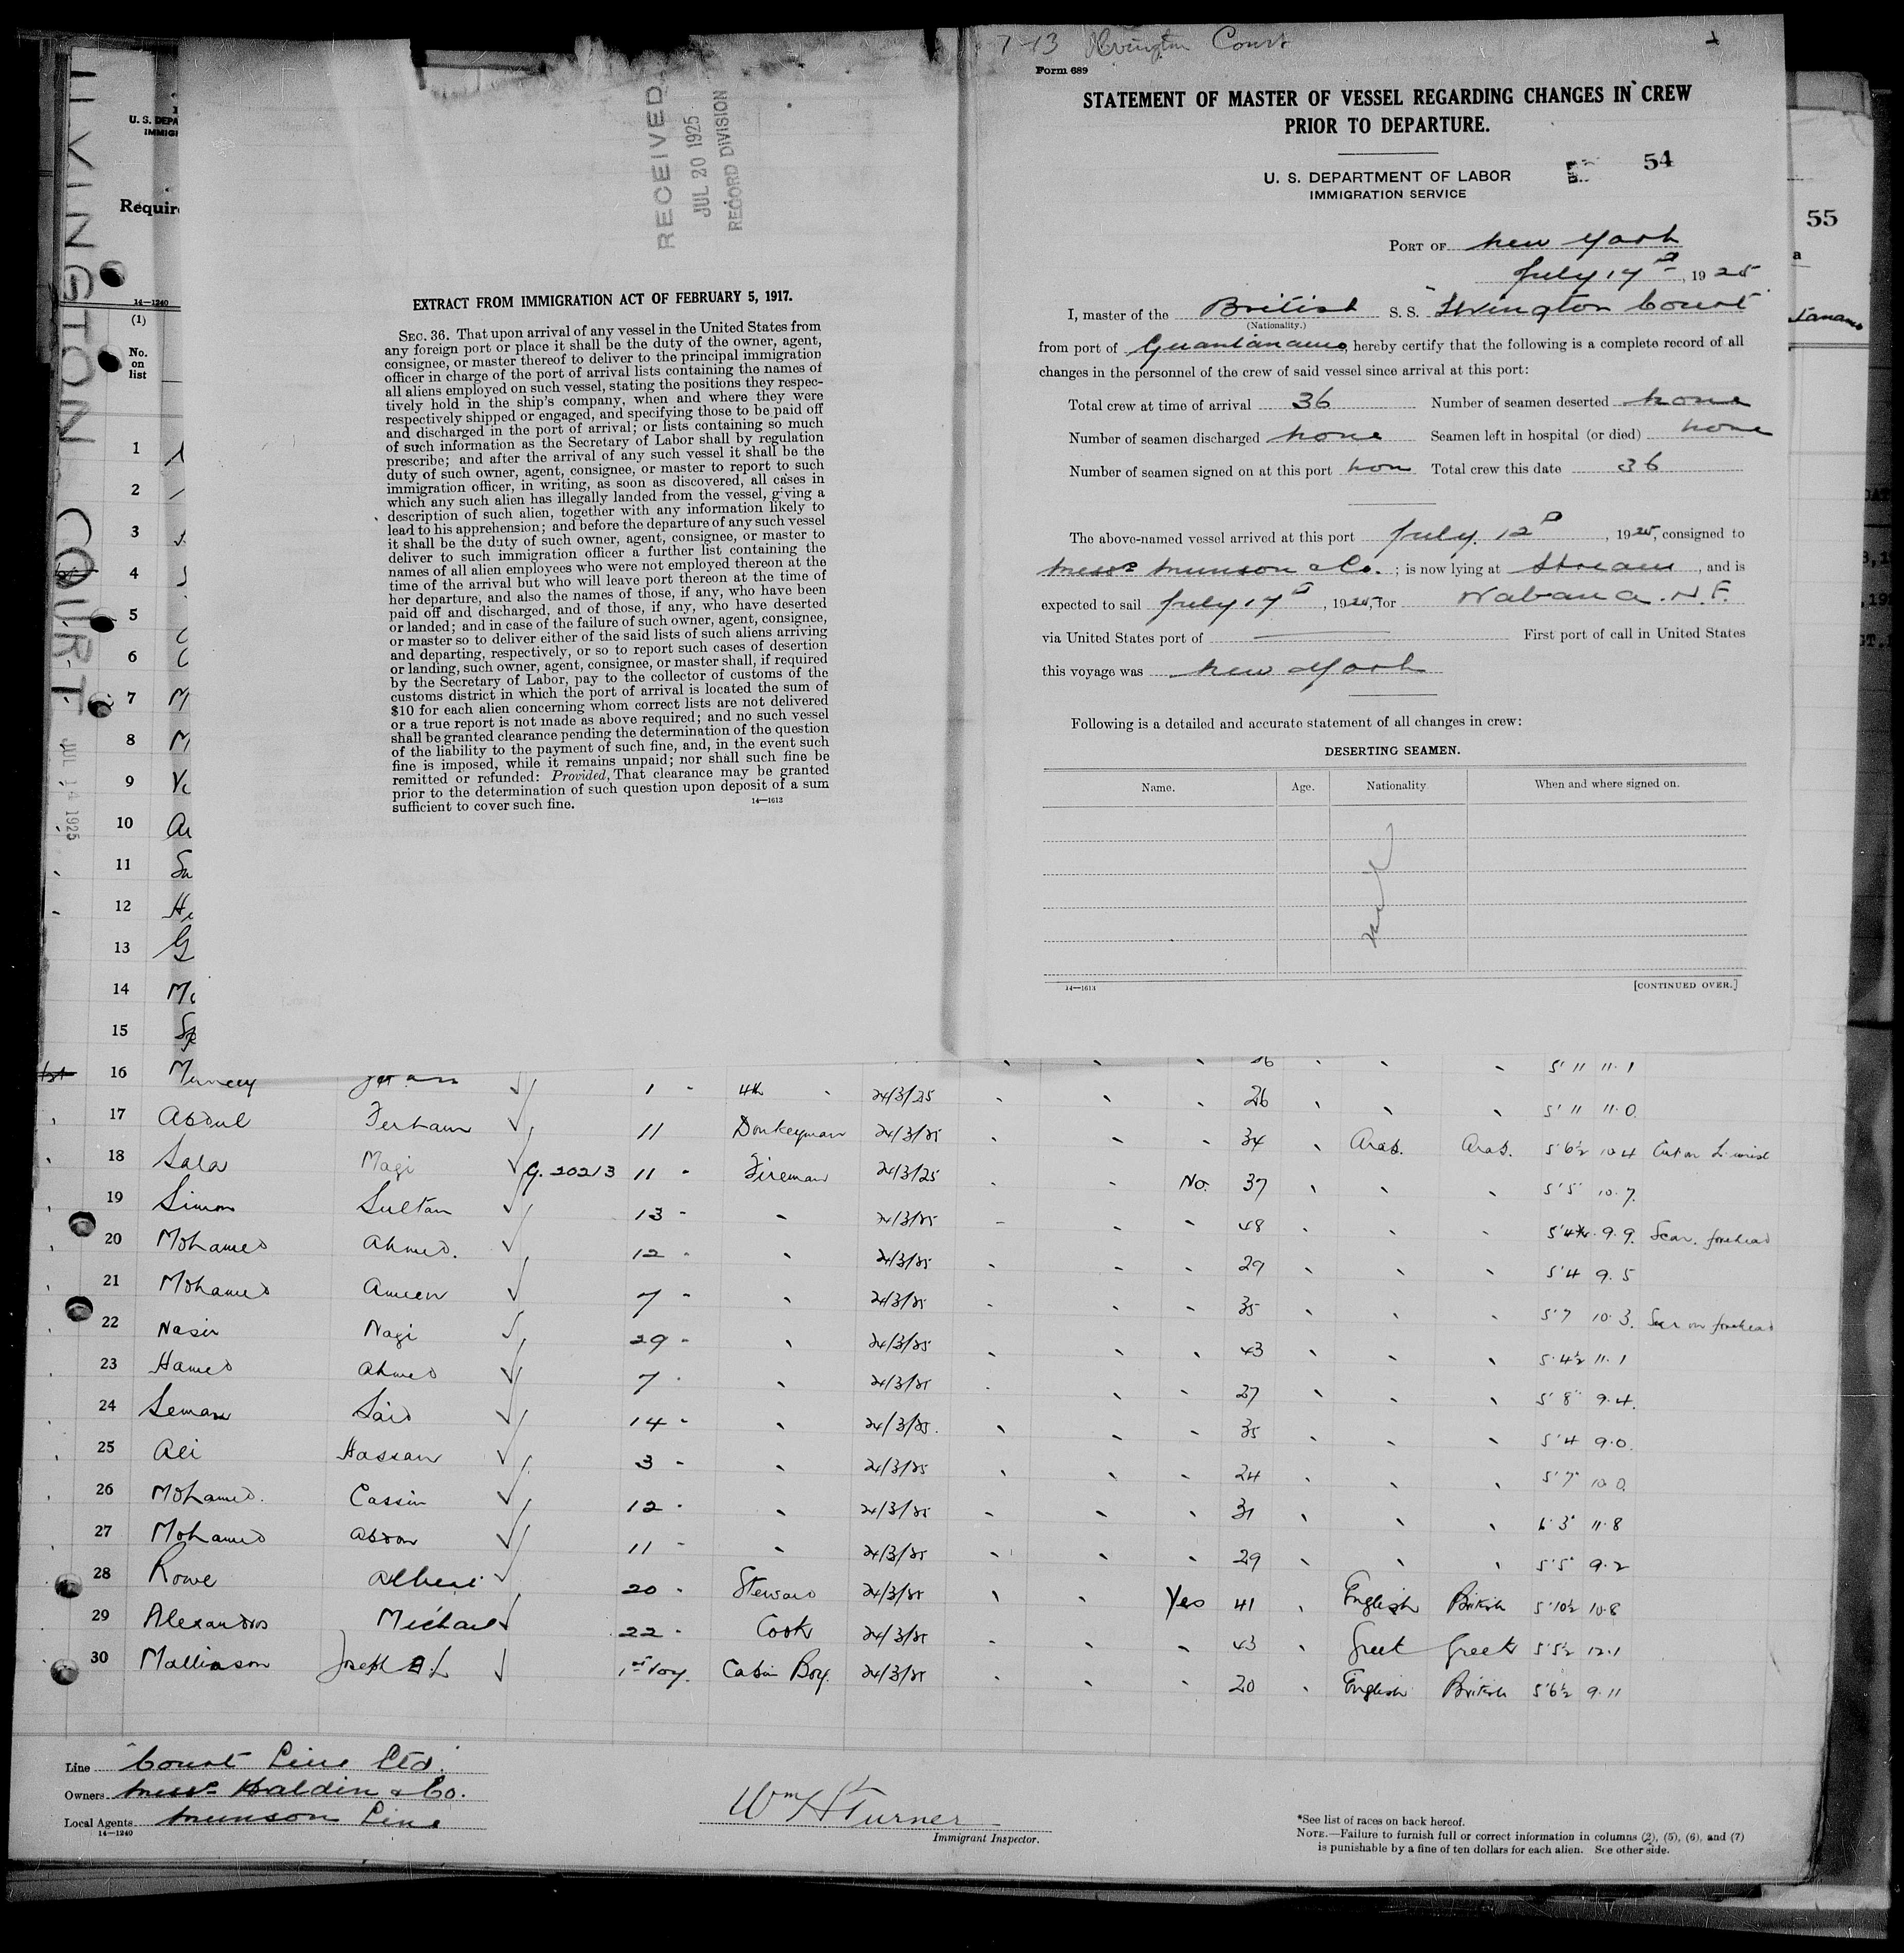 7-13 Ilvington Court
Form 689
STATEMENT OF MASTER OF VESSEL REGARDING CHANGES IN CREW
PRIOR TO DEPARTURE.
U. S. DEPARTMENT OF LABOR
IMMIGRATION SERVICE
54
PORT OF New York
July 17th, 1925
I, master of the British S. S. "Ilvington Court"
(Nationality.)
from port of Guantanamo, hereby certify that the following is a complete record of all
changes in the personnel of the crew of said vessel since arrival at this port:
Total crew at time of arrival 36 Number of seamen deserted none
Number of seamen discharged none Seamen left in hospital (or died) none
Number of seamen signed on at this port non Total crew this date 36
The above-named vessel arrived at this port July 12th, 1925, consigned to
Messrs Munson & Co. ; is now lying at Stream, and is
expected to sail July 17th, 1925, for Wabana. N.F.
via United States port of First port of call in United States
this voyage was New York
Following is a detailed and accurate statement of all changes in crew:
DESERTING SEAMEN.
Name. Age. Nationality When and where signed on.
14—1613 [CONTINUED OVER.]
RECEIVED
JUL 20 1925
RECORD DIVISION
EXTRACT FROM IMMIGRATION ACT OF FEBRUARY 5, 1917.
SEC. 36. That upon arrival of any vessel in the United States from
any foreign port or place it shall be the duty of the owner, agent,
consignee, or master thereof to deliver to the principal immigration
officer in charge of the port of arrival lists containing the names of
all aliens employed on such vessel, stating the positions they respec-
tively hold in the ship's company, when and where they were
respectively shipped or engaged, and specifying those to be paid off
and discharged in the port of arrival; or lists containing so much
of such information as the Secretary of Labor shall by regulation
prescribe; and after the arrival of any such vessel it shall be the
duty of such owner, agent, consignee, or master to report to such
immigration officer, in writing, as soon as discovered, all cases in
which any such alien has illegally landed from the vessel, giving a
description of such alien, together with any information likely to
lead to his apprehension; and before the departure of any such vessel
it shall be the duty of such owner, agent, consignee, or master to
deliver to such immigration officer a further list containing the
names of all alien employees who were not employed thereon at the
time of the arrival but who will leave port thereon at the time of
her departure, and also the names of those, if any, who have been
paid off and discharged, and of those, if any, who have deserted
or landed; and in case of the failure of such owner, agent, consignee,
or master so to deliver either of the said lists of such aliens arriving
and departing, respectively, or so to report such cases of desertion
or landing, such owner, agent, consignee, or master shall, if required
by the Secretary of Labor, pay to the collector of customs of the
customs district in which the port of arrival is located the sum of
$10 for each alien concerning whom correct lists are not delivered
or a true report is not made as above required; and no such vessel
shall be granted clearance pending the determination of the question
of the liability to the payment of such fine, and, in the event such
fine is imposed, while it remains unpaid; nor shall such fine be
remitted or refunded: Provided, That clearance may be granted
prior to the determination of such question upon deposit of a sum
sufficient to cover such fine. 14—1613
ILVINGTON COURT
JUL 14 1925
U. S. DEPA
IMMIGI
Require
14—1240
(1)
No.
on
list
55
1
2
3
4
5
6
7
8
9
10
11
12
13
14
15
16 1 4th 24/3/25 26 5' 11 11.1
17 Abdul Ferham 11 Donkeyman 24/3/25 34 Arab. Arab. 5'6½ 10.4 Cut on L. wrist
18 Sala Magi G. 20213 11 Fireman 24/3/25 No. 37 5'5 10.7
19 Simon Sultan 13 24/3/25 48 5'4½ 9.9 Scar. forehead
20 Mohamed Ahmed. 12 24/3/25 29 5'4 9.5
21 Mohamed Ameen 7 24/3/25 35 5'7 10.3. Scar on forehead
22 Nasir Nagi 29 24/3/25 43 5'4½ 11.1
23 Hamed Ahmed 7 24/3/25 27 5'8" 9.4.
24 Seman Said 14 24/3/25. 35 5'4 9.0.
25 Ali Hassan 3 24/3/25 24 5'7" 10.0.
26 Mohamed. Cassim 12 24/3/25 31 6'3" 11.8
27 Mohamed Abdon 11 24/3/25 29 5'5" 9.2
28 Rowe Albert 20 Steward 24/3/25 Yes 41 English British 5'10½ 10.8
29 Alexandros Michael 22 Cook 24/3/25 43 Greek Greek 5'5½ 12.1
30 Mallinson Joseph A L 1st Voy. Cabin Boy. 24/3/25 20 English British 5'6½ 9.11
Line "Court Line Ltd."
Owners Messrs Haldin & Co.
Local Agents Munson Line
14—1240
Wm H Turner
Immigrant Inspector.
*See list of races on back hereof.
NOTE.—Failure to furnish full or correct information in columns (2), (5), (6), and (7)
is punishable by a fine of ten dollars for each alien. See other side.